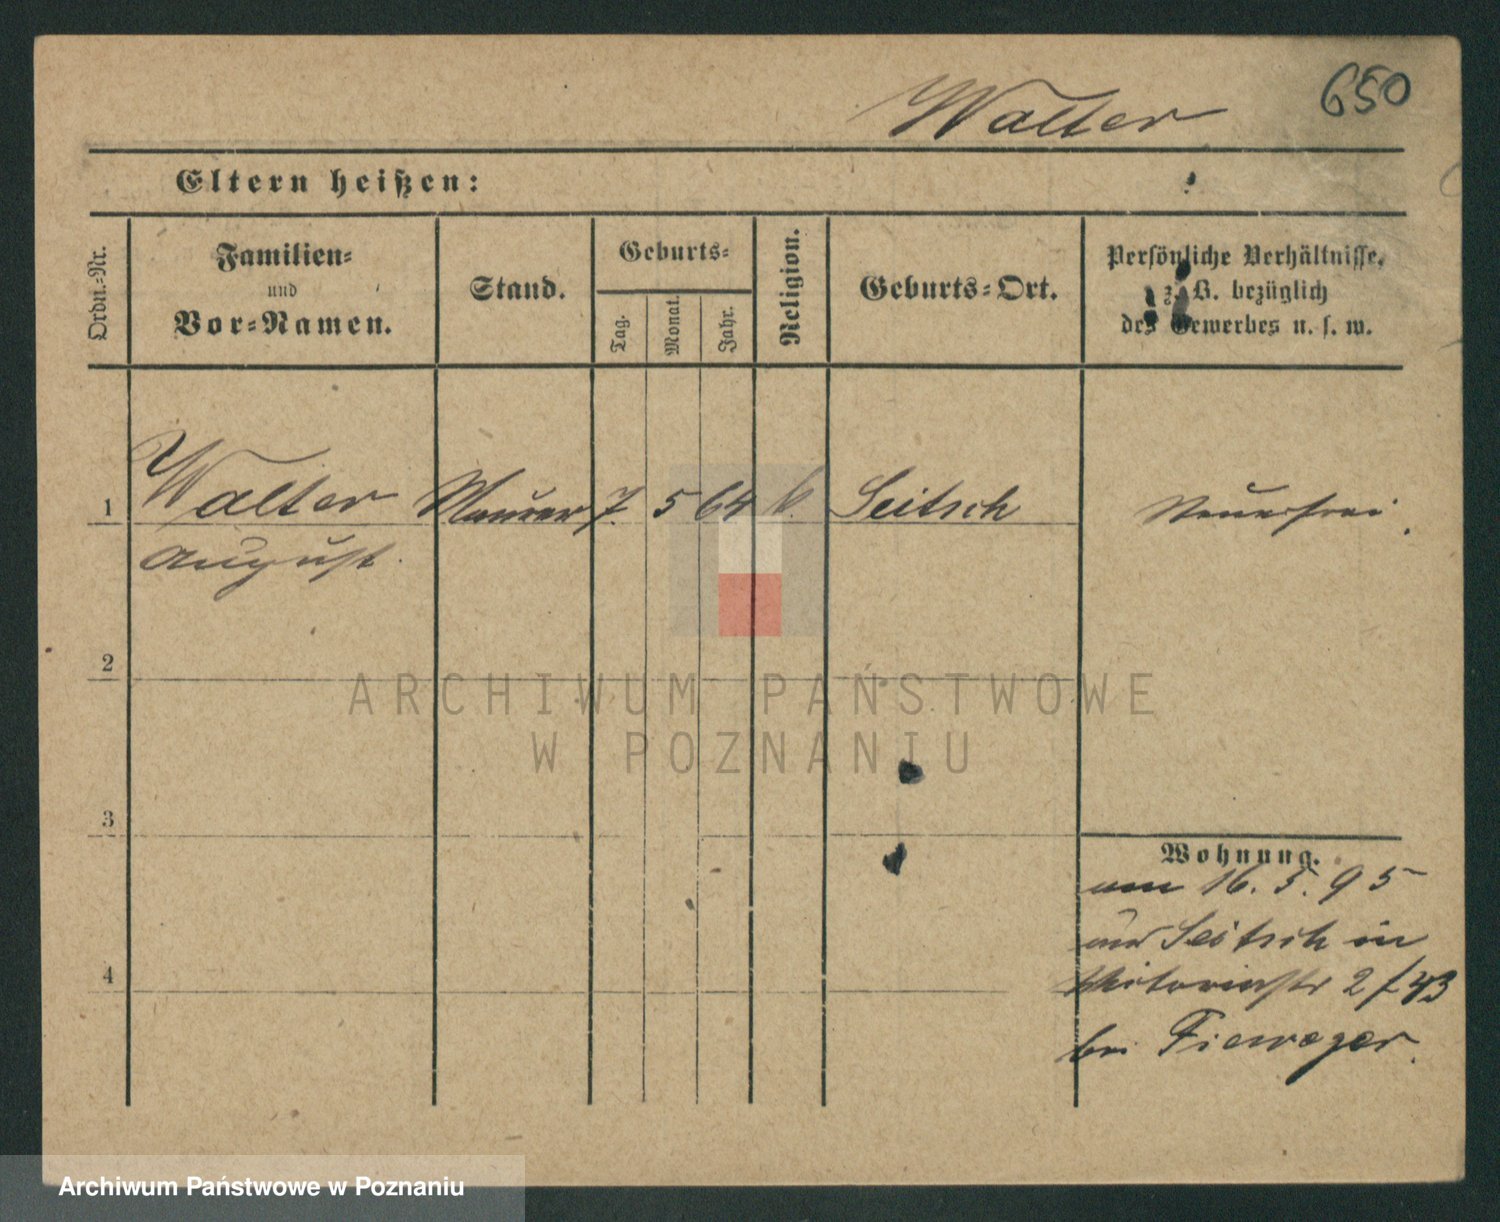 650
Walter
Eltern heißen:
Ordn.-Nr.
Familien-
und
Vor-Namen.
Stand.
Geburts-
Tag.
Monat.
Jahr.
Religion.
Geburts-Ort.
Persönliche Verhältnisse,
z. B. bezüglich
des Gewerbes u. s. w.
1
Walter Maurer 7. 5 64 k. Seitsch
August.
2
3
4
Wohnung.
am 16. 5. 95
aus Seitsch in
Victoriastr 2 / 43
bei Fieweger.
ARCHIWUM PAŃSTWOWE
W POZNANIU
Archiwum Państwowe w Poznaniu